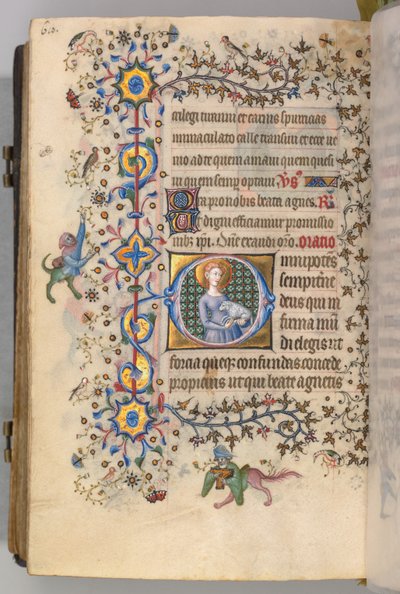 crilegi tiranni et carnis spurcicias
inmaculato calle transiui et ecce ue
nio ad te quem amaui quem quesi
ui quem semp optaui. Vs
Ora pro nobis beata agnes. R
Ut digni efficiamur promissio
nibz xpi. Dne exaudi oro. oratio
Omnipotēs
sempiterne
deus qui in
firma mū
di elegis ut
forcia queqz confundas concede
propicius ut qui beate agnetis